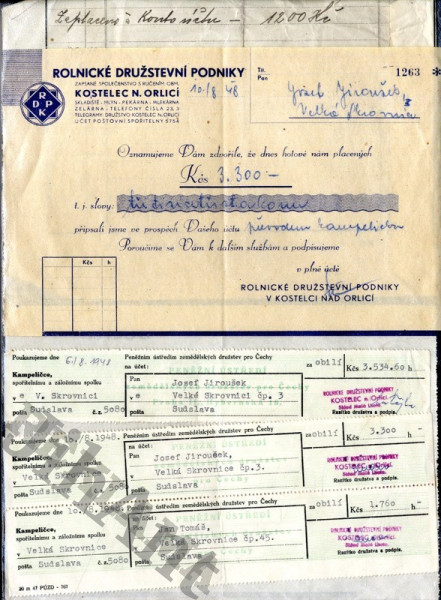 Zaplaceno z Konto účtu – 1200 Kč
ROLNICKÉ DRUŽSTEVNÍ PODNIKY
ZAPSANÉ SPOLEČENSTVO S RUČENÍM OBM.
KOSTELEC N. ORLICÍ
SKLADIŠTĚ - MLÝN - PEKÁRNA - MLÉKÁRNA
ZELÁRNA - TELEFONY ČÍSLA 25,
TELEGRAMY: DRUŽSTVO KOSTELEC N. ORLICÍ
ÚČET POŠTOVNÍ SPOŘITELNY
RDPK
10/8 48
Tit.
Pan
1263 *
Jiroušek
Velká Skrovnice
Oznamujeme Vám zdvořile, že dnes hotově nám placených
Kčs 3.300 -
t. j. slovy: třitisícetřista korun
připsali jsme ve prospěch Vašeho účtu převodem Kampelička
Poroučíme se Vám k dalším službám a podpisujeme
v plné úctě
ROLNICKÉ DRUŽSTEVNÍ PODNIKY
V KOSTELCI NAD ORLICÍ
Kčs h
Poukazujeme dne 6/8 1948
Peněžním ústředím zemědělských družstev pro Čechy
za obilí Kčs 3.534.60 h
Kampeličce,
spořitelnímu a záložnímu spolku
v V. Skrovnici
pošta Sudslava č. ž. 5080
na účet:
Pan Josef Jiroušek
v Velké Skrovnici čp. 3
pošta Sudslava
ROLNICKÉ DRUŽSTEVNÍ PODNIKY
KOSTELEC n. Orlicí
Razítko družstva a podpis.
Poukazujeme dne 10./8.1948.
Peněžním ústředím zemědělských družstev pro Čechy
za obilí Kčs 3.300 h -
Kampeličce,
spořitelnímu a záložnímu spolku
v Velká Skrovnice
pošta Sudslava č. ž. 5080
na účet:
Pan Josef Jiroušek,
v Velká Skrovnice čp.3.
pošta Sudslava
ROLNICKÉ DRUŽSTEVNÍ PODNIKY
KOSTELEC n. Orlicí
Razítko družstva a podpis.
Poukazujeme dne 10./8.1948.
Peněžním ústředím zemědělských družstev pro Čechy
za obilí Kčs 1.760 h -
Kampeličce,
spořitelnímu a záložnímu spolku
v Velká Skrovnice
pošta Sudslava č. ž. 5080
na účet:
Jan Tomáš,
Velká Skrovnice čp.45.
pošta Sudslava
ROLNICKÉ DRUŽSTEVNÍ PODNIKY
KOSTELEC n. Orlicí
Razítko družstva a podpis.